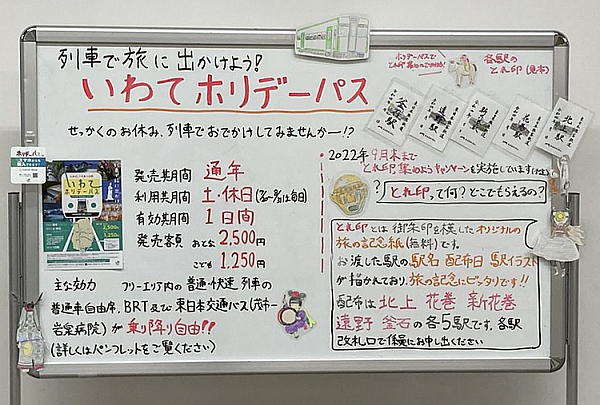 列車で旅に出かけよう!
いわてホリデーパス
せっかくのお休み、列車でおでかけしてみませんかー!?
発売期間 通年
利用期間 土・休日
有効期間 1日間
発売額 おとな 2,500円
こども 1,250円
主な効力 フリーエリア内の普通・快速列車の
普通車自由席、BRT及び東日本交通バス(茂市〜
岩泉病院)が乗り降り自由!!
(詳しくはパンフレットをご覧ください)
いわて
ホリデーパス
ホリデーパスで
各駅の
とれ印(見本)
釜石駅
遠野駅
新花巻駅
花巻駅
北上駅
2022年9月末まで
とれ印集めようキャンペーンを実施しています
?とれ印って何?どこでもらえるの?
とれ印とは御朱印を模したオリジナルの
旅の記念紙(無料)です。
お渡しした駅の駅名 配布日 駅イラスト
が描かれており、旅の記念にピッタリです!!
配布は北上 花巻 新花巻
遠野 釜石の各5駅です。各駅
改札口で係員にお申し出ください